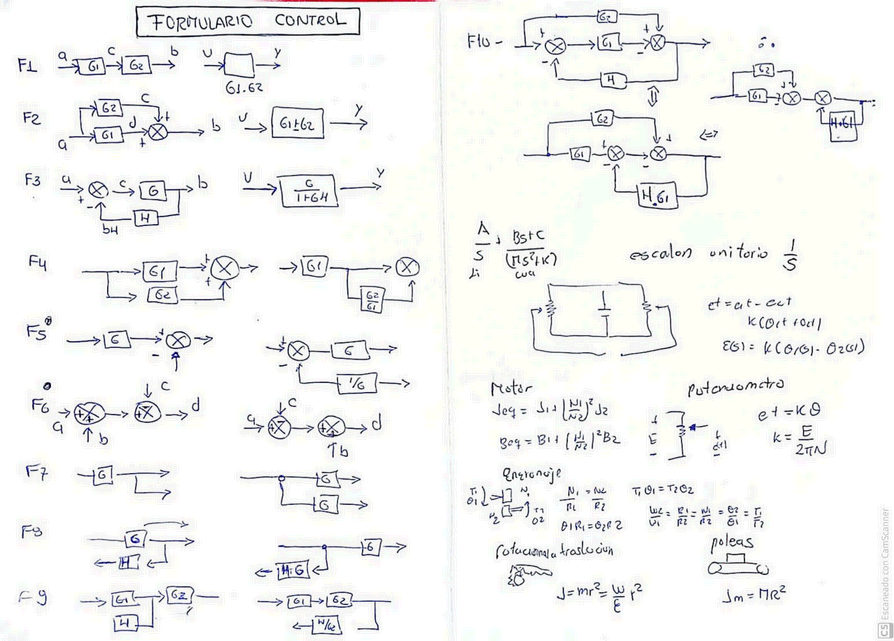 FORMULARIO CONTROL
F1 a G1 c G2 b U Y
G1.G2
F2 G2 c d G1 a b U G1±G2 Y
F3 a c G b U G/1+GH Y
H
bH
F4 G1 G2 G1 G2/G1
F5 G G 1/G
F6 a b c d a c b d
F7 G G G
F8 G H H.G G
F9 G1 G2 H G1 G2
F10 -
G2
G1
H
G2
G1
H.G1
G2
G1
H.G1
A/S + BS+C
escalon unitorio 1/S
E(s) = K(θ1(s) - θ2(s))
Motor
Jeq = J1 + (N1/N2)² J2
Beq = B1 + (N1/N2)² B2
Potenciometro
E
et = Kθ
K = E/2πN
Engranaje
T1 θ1 N1
N2 T2 θ2
N1/R1 = N2/R2
T1θ1 = T2θ2
θ1R1 = θ2R2
W2/W1 = R1/R2 = N1/N2 = θ2/θ1 = T1/T2
rotacional a traslacion
poleas
J = mr² = W/g r²
Jm = MR²
CS Escaneado con CamScanner